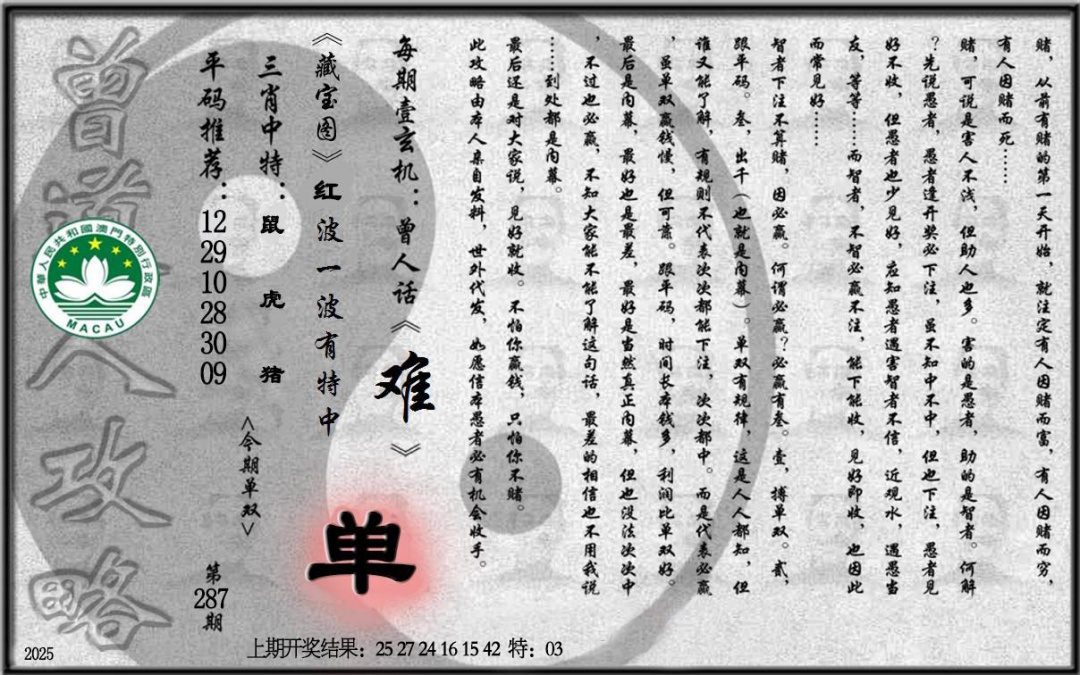 赌，从前有赌的第一天开始，就注定有人因赌而富，有人因赌而穷，
有人因赌而死……
赌，可说是害人不浅，但助人也多。害的是愚者，助的是智者。何解
？先说愚者，愚者逢开奖必下注，虽不知中不中，但也下注，愚者见
好不收，但愚者也少见好，应知愚者遇害智者不信，近观水，遇愚当
友，等等……而智者，不智必赢不注，能下能收，见好即收，也因此
而常见好……
智者下注不算赌，因必赢。何谓必赢？必赢有叁。壹，搏单双。贰，
跟平码。叁，出千（也就是内幕）。单双有规律，这是人人都知，但
谁又能了解，有规则不代表次次都能下注，次次都中。而是代表必赢
，虽单双赢钱慢，但可靠。跟平码，时间长本钱多，利润比单双好。
最后是内幕，最好也是最差，最好是当然真正内幕，但也没法次次中
，不过也必赢，不知大家能不能了解这句话，最差的相信也不用我说
……到处都是内幕。
最后还是对大家说，见好就收。不怕你赢钱，只怕你不赌。
此攻略由本人亲自发料，世外代发，如愿信本愚者必有机会收手。
每期壹玄机：曾人话《难》
《藏宝图》红波一波有特中
三肖中特：鼠 虎 猪
平码推荐：12 29 10 28 30 09
<今期单双>
单
第287期
曾道人攻略
中華人民共和國澳門特別行政區
MACAU
上期开奖结果：25 27 24 16 15 42 特：03
2025